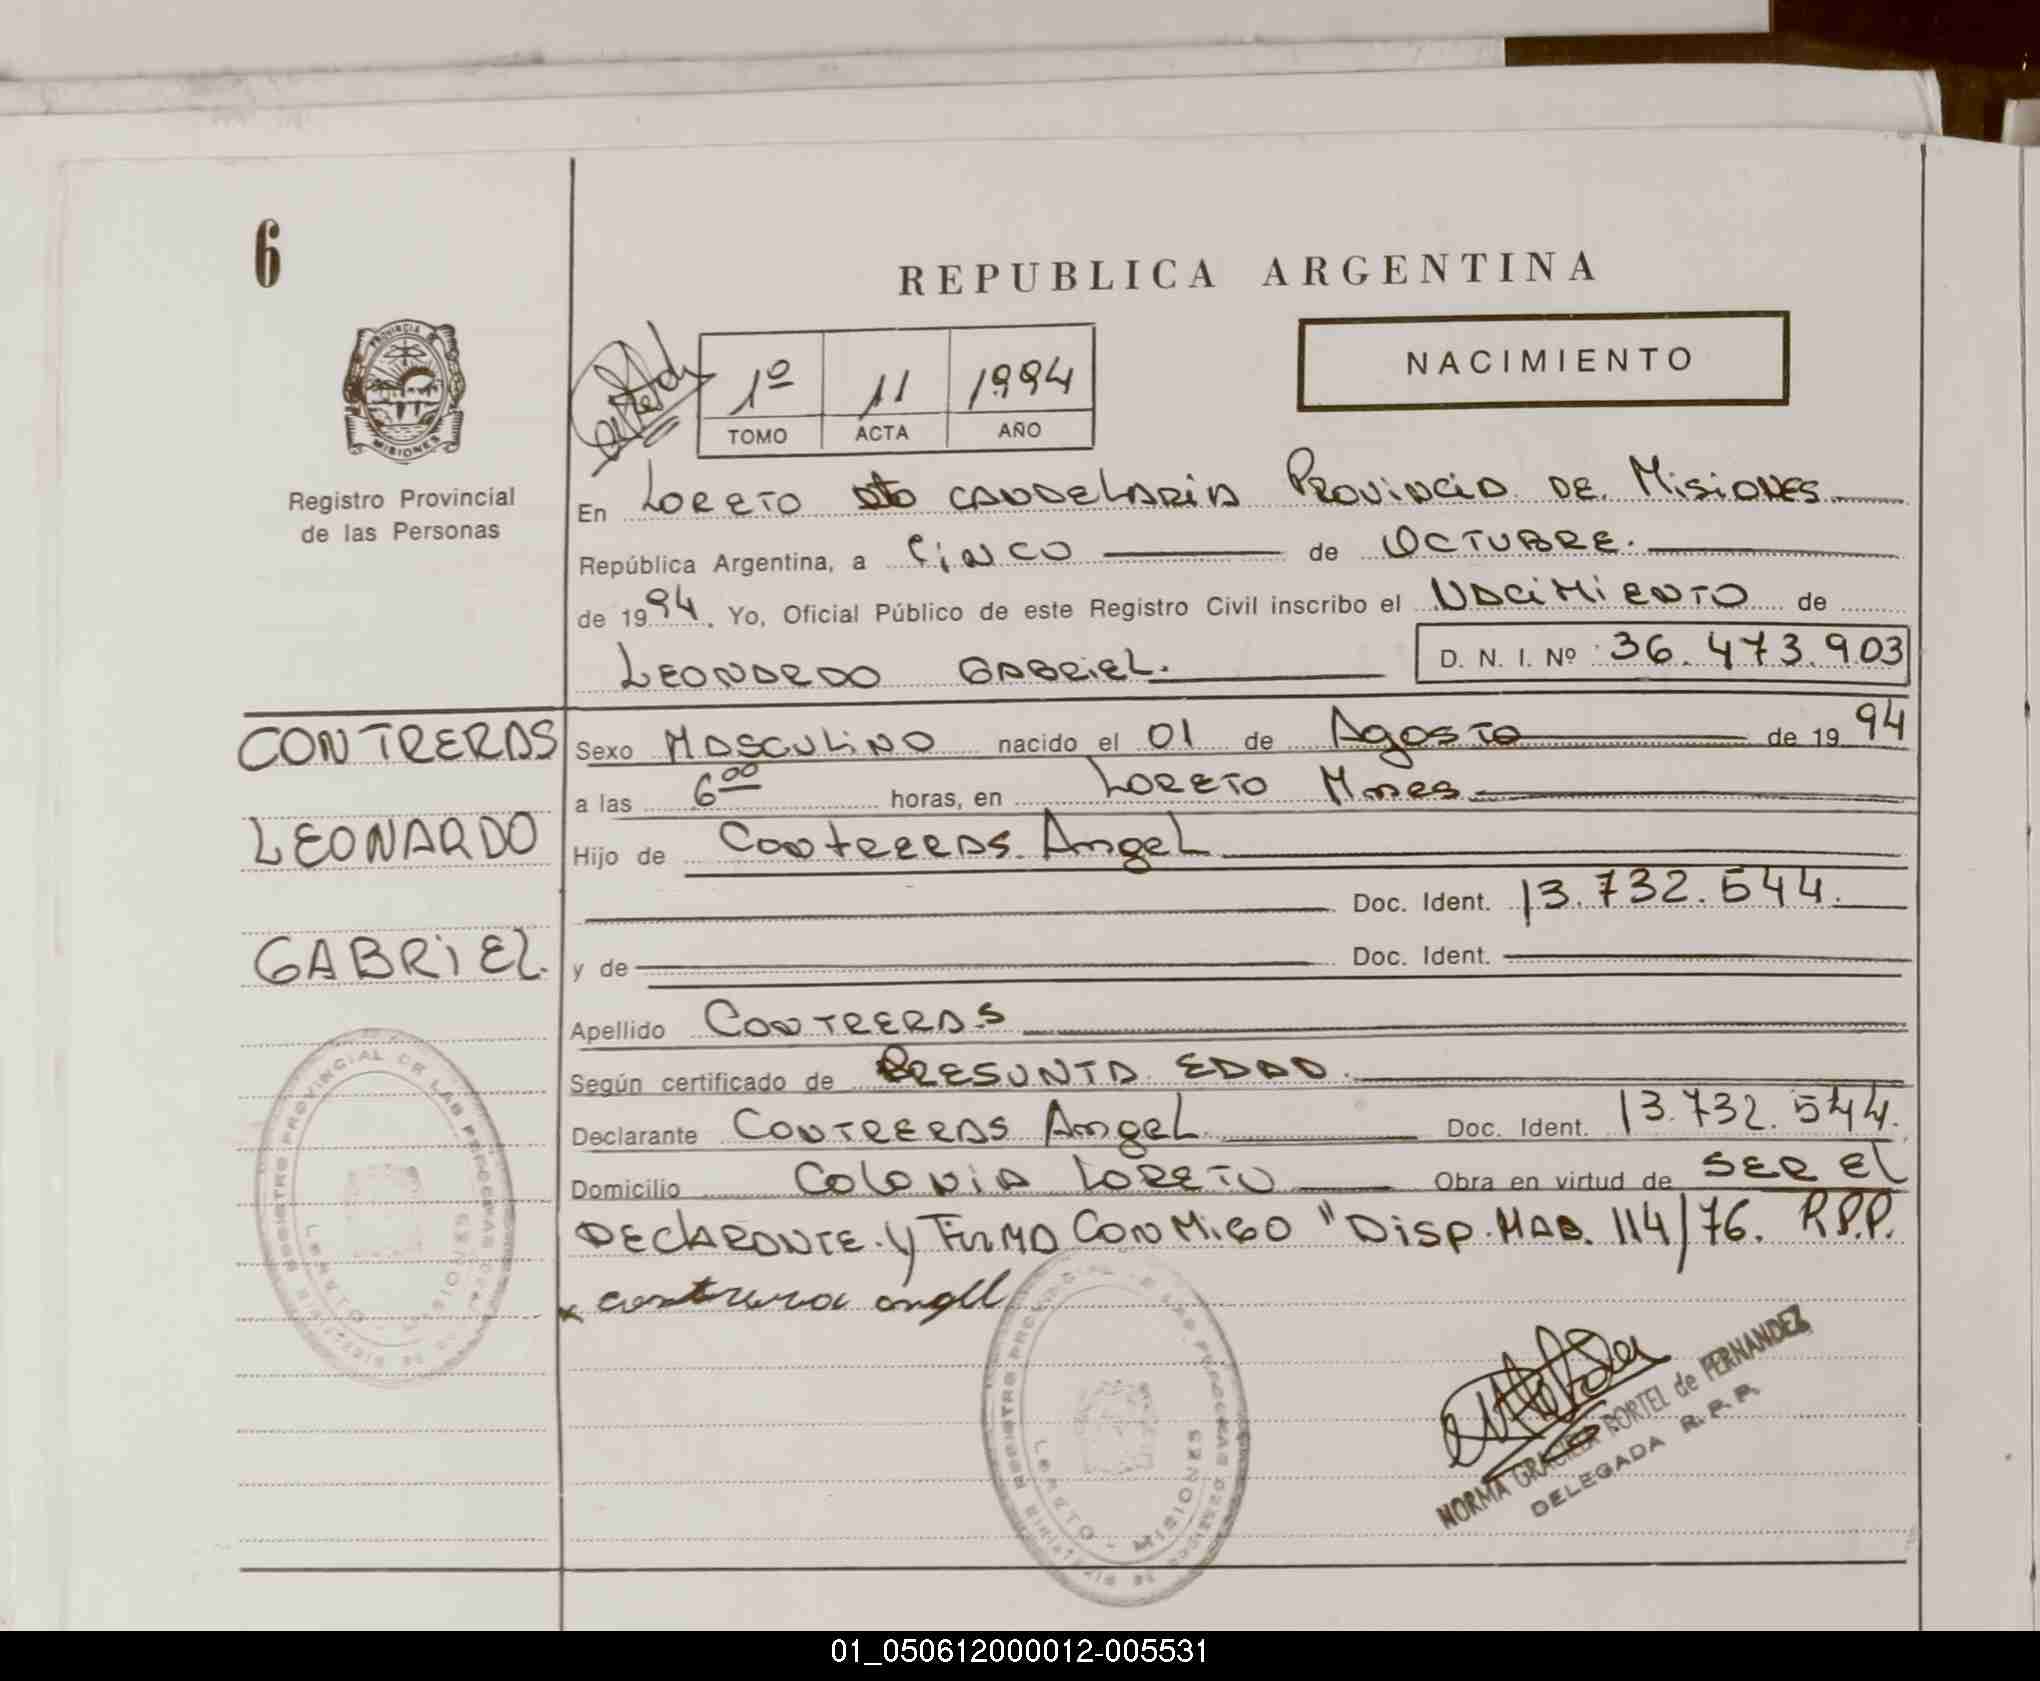 6
REPUBLICA ARGENTINA
PROVINCIA DE
MISIONES
Registro Provincial
de las Personas
1º 11 1994
TOMO ACTA AÑO
NACIMIENTO
En LORETO Dto CANDELARIA PROVINCIA DE MISIONES
República Argentina, a CINCO de OCTUBRE.
de 1994. Yo, Oficial Público de este Registro Civil inscribo el NACIMIENTO de
LEONARDO GABRIEL. D. N. I. Nº 36.473.903
CONTRERAS
LEONARDO
GABRIEL.
Sexo MASCULINO nacido el 01 de Agosto de 1994
a las 600 horas, en LORETO Mnes
Hijo de Contreras Angel
Doc. Ident. 13.732.544.
y de Doc. Ident.
Apellido CONTRERAS
Según certificado de PRESUNTA EDAD.
Declarante CONTRERAS Angel Doc. Ident. 13.732.544.
Domicilio COLONIA LORETO Obra en virtud de SER EL
DECLARANTE. Y FIRMA CONMIGO "DISP. MAB. 114/76. R.P.P.
x contrera angel
REGISTRO PROVINCIAL DE LAS PERSONAS
LORETO - MISIONES
REGISTRO PROVINCIAL DE LAS PERSONAS
LORETO - MISIONES
NORMA GRACIELA PORTEL de FERNANDEZ
DELEGADA R. P. P.
01_050612000012-005531